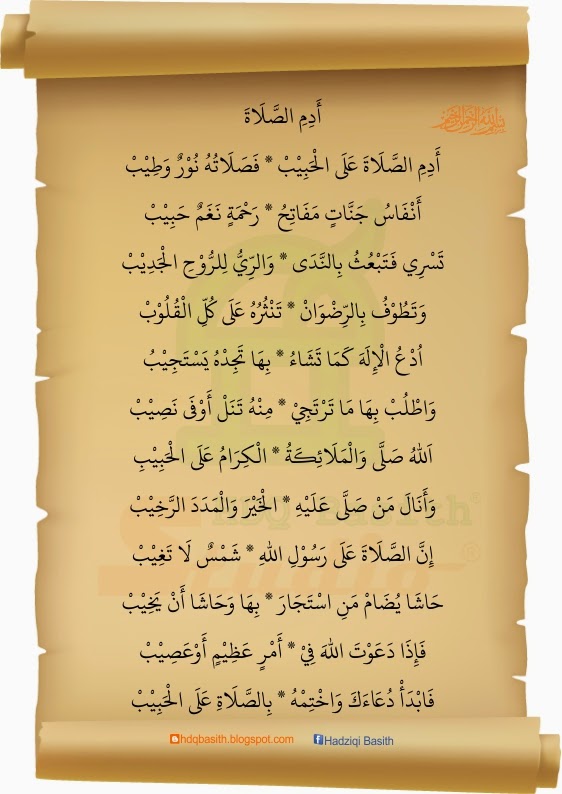 أَدِمِ الصَّلَاةَ
بسم الله الرحمن الرحيم
أَدِمِ الصَّلَاةَ عَلَى الْحَبِيْبْ * فَصَلَاتُهُ نُوْرٌ وَطِيْبْ
أَنْفَاسُ جَنَّاتٍ مَفَاتِحُ * رَحْمَةٍ نَغَمٌ حَبِيْبْ
تَسْرِي فَتَبْعُثُ بِالنَّدَى * وَالرِّيُّ لِلرُّوْحِ الْجَدِيْبْ
وَتَطُوْفُ بِالرِّضْوَانْ * تَنْثُرُهُ عَلَى كُلِّ الْقُلُوْبْ
اُدْعُ الْإِلَهَ كَمَا تَشَاءُ * بِهَا تَجِدْهُ يَسْتَجِيْبُ
وَاطْلُبْ بِهَا مَا تَرْتَجِيْ * مِنْهُ تَنَلْ أَوْفَى نَصِيْبْ
اَللهُ صَلَّى وَالْمَلَائِكَةُ * الْكِرَامُ عَلَى الْحَبِيْبِ
وَأَنَالَ مَنْ صَلَّى عَلَيْهِ * الْخَيْرَ وَالْمَدَدَ الرَّخِيْبْ
إِنَّ الصَّلَاةَ عَلَى رَسُوْلِ اللهِ * شَمْسٌ لَا تَغِيْبْ
حَاشَا يُضَامْ مَنِ اسْتَجَارَ * بِهَا وَحَاشَا أَنْ يَخِيْبْ
فَإِذَا دَعَوْتَ اللهَ فِيْ * أَمْرٍ عَظِيْمٍ أَوْعَصِيْبْ
فَابْدَأْ دُعَاءَكَ وَاخْتِمْهُ * بِالصَّلَاةِ عَلَى الْحَبِيْبْ
HDQ Basith®
Studio®
hdqbasith.blogspot.com Hadziqi Basith